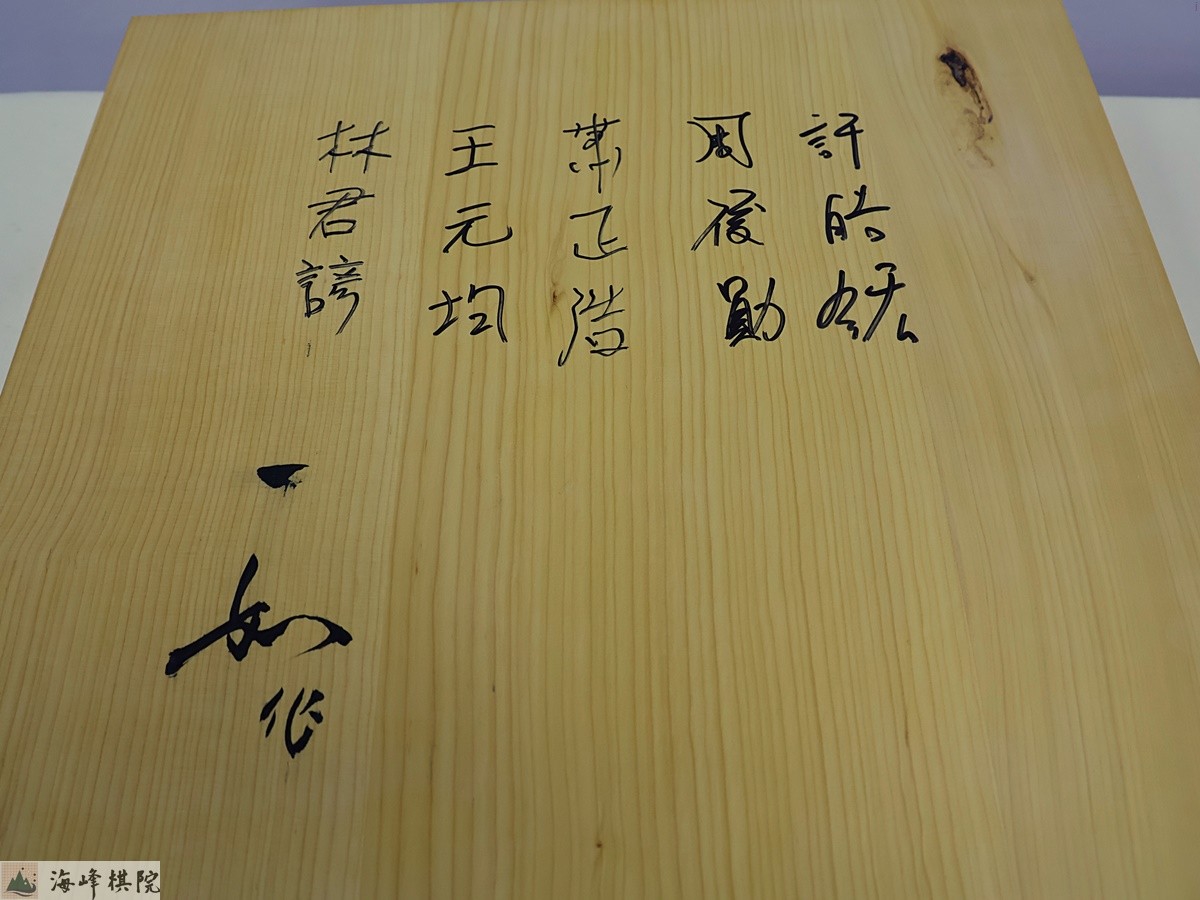 許皓鋐
周俊勳
蕭正浩
王元均
林君諺
一如作
海峰棋院